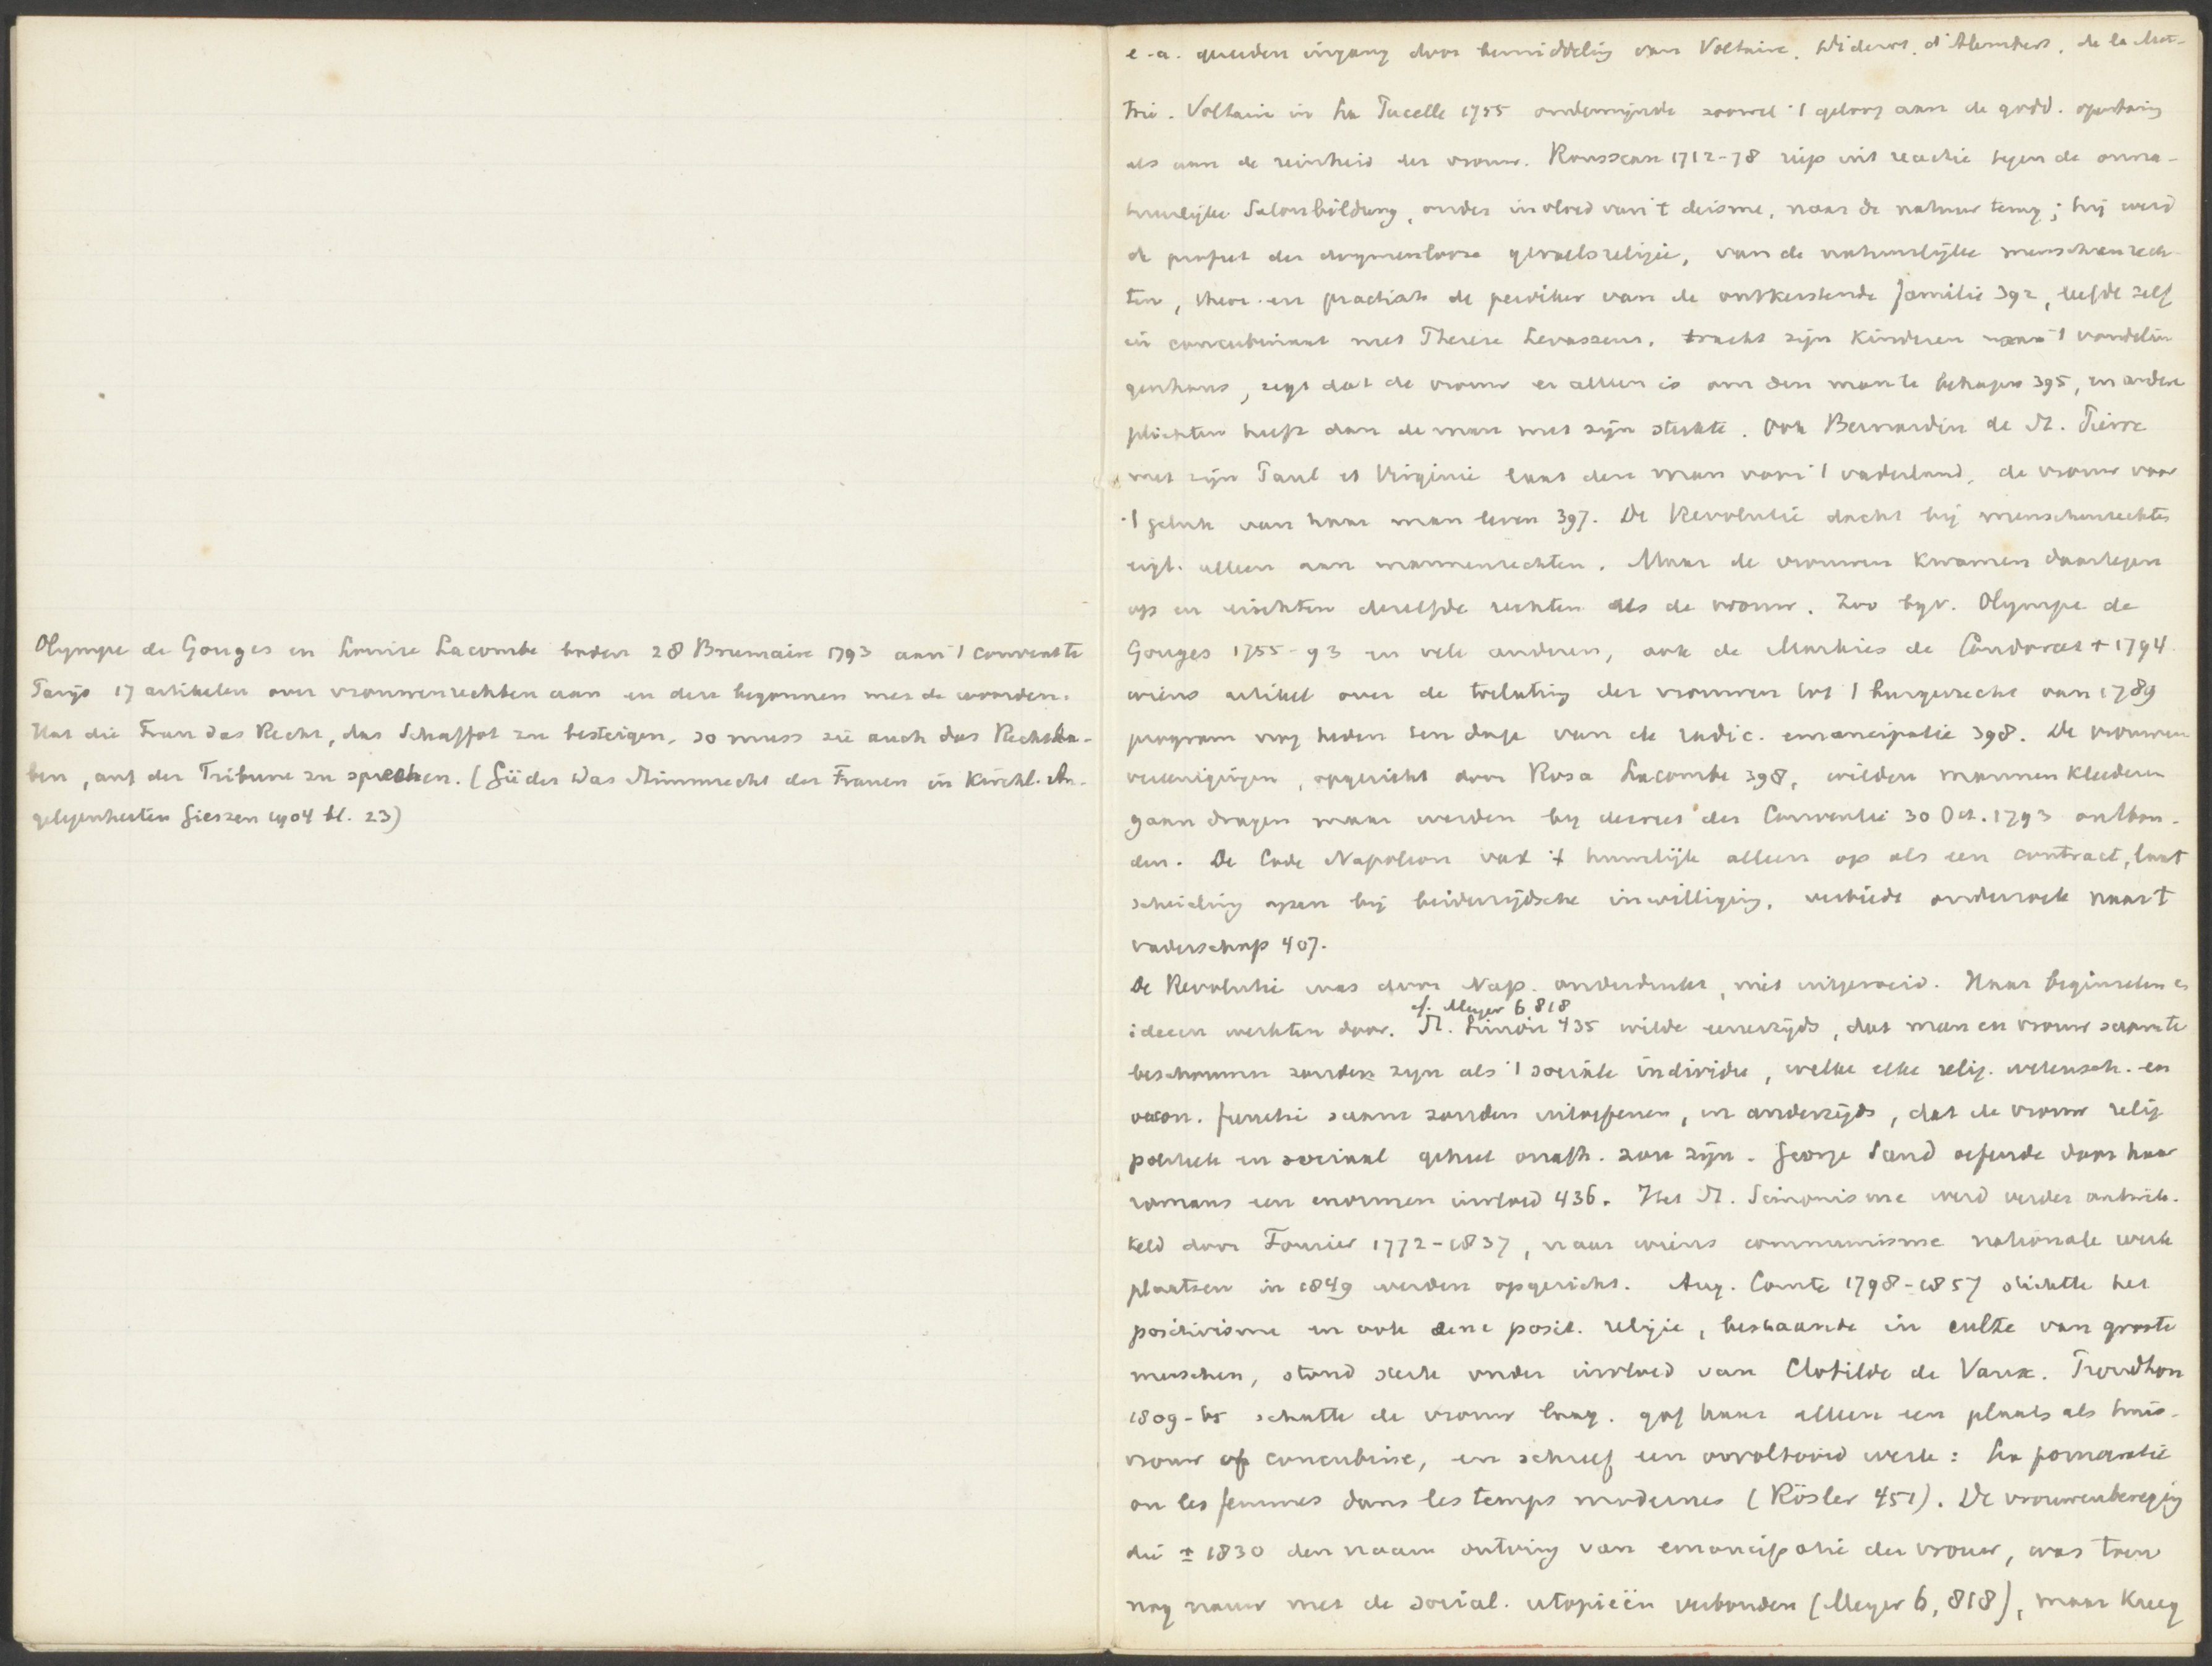 Olympe de Gouges en Louise Lacombe boden 28 Brumaire 1793 aan 't convent te
Parijs 17 artikelen over vrouwenrechten aan en deze begonnen met de woorden:
Hat die Frau das Recht, das Schaffot zu besteigen, so muss sie auch das Recht ha-
ben, auf der Tribune zu sprechen. (Füder Das Stimmrecht der Frauen in Kirchl. An-
gelegenheiten Gieszen 1904 bl. 23)
e.a. ingang door bemiddeling van Voltaire, Diderot, d'Alembert, de la Met-
trie. Voltaire in La Pucelle 1755 ondermijnde zoowel 't geloof aan de godd. openbaring
als aan de reinheid der vrouw. Rousseau 1712-78 riep uit reactie tegen de onna-
tuurlijke Salonbildung, onder invloed van 't deisme, naar de natuur terug; hij werd
de profeet der dogmenlooze gevoelsreligie, van de natuurlijke menschenrech-
ten, theor. en practisch de prediker van de ontkerstende familie 392, leefde zelf
in concubinaat met Therese Levasseur, bracht zijn kinderen naar 't vondelin-
genhuis, zegt dat de vrouw er alleen is om den man te behagen 395, en andere
plichten heeft dan de man met zijn sterkte. Ook Bernardin de St. Pierre
met zijn Paul et Virginie laat den man voor 't vaderland, de vrouw voor
't geluk van haar man leven 397. De Revolutie dacht bij menschenrechten
eigl. alleen aan mannenrechten. Maar de vrouwen kwamen daartegen
op en eischten dezelfde rechten als de vrouw. Zoo bijv. Olympe de
Gouges 1755-93 en vele anderen, ook de Markies de Condorcet † 1794
wiens artikel over de toelating der vrouwen tot 't burgerrecht van 1789
program nog heden ten dage van de radic. emancipatie 398. De vrouwen
vereenigingen, opgericht door Rosa Lacombe 398, wilden mannenkleederen
gaan dragen maar werden bij decreet der Conventie 30 Oct. 1793 ontbon-
den. De Code Napoleon vat 't huwelijk alleen op als een contract, laat
scheiding open bij beiderzijdsche inwilliging, verbiedt onderzoek naar 't
vaderschap 407.
De Revolutie was door Nap. onderdrukt, niet uitgeroeid. Haar beginselen en
cf. Meyer 6 818
ideeen werkten door. St. Simon 435 wilde eenerzijds, dat man en vrouw saam te
beschouwen zouden zijn als 't sociale individu, welke elke relig. wetensch. en
oecon. functie saam zouden uitoefenen, en anderzijds, dat de vrouw relig
politiek en sociaal geheel onafh. zou zijn. George Sand oefende door haar
romans een enormen invloed 436. Het St. Simonisme werd verder ontwik-
keld door Fourier 1772-1837, naar wiens communisme nationale werk
plaatsen in 1849 werden opgericht. Aug. Comte 1798-1857 stichtte het
positivisme en ook eene posit. religie, bestaande in culte van groote
menschen, stond sterk onder invloed van Clotilde de Vaux. Proudhon
1809-65 schatte de vrouw laag, gaf haar alleen een plaats als huis-
vrouw of concubine, en schreef een onvoltooid werk: La pornocratie
ou les femmes dans les temps modernes (Rösler 451). De vrouwenbeweging
die ± 1830 den naam ontving van emancipatie der vrouw, was toen
nog nauw met de social. utopieën verbonden (Meyer 6, 818), maar kreeg